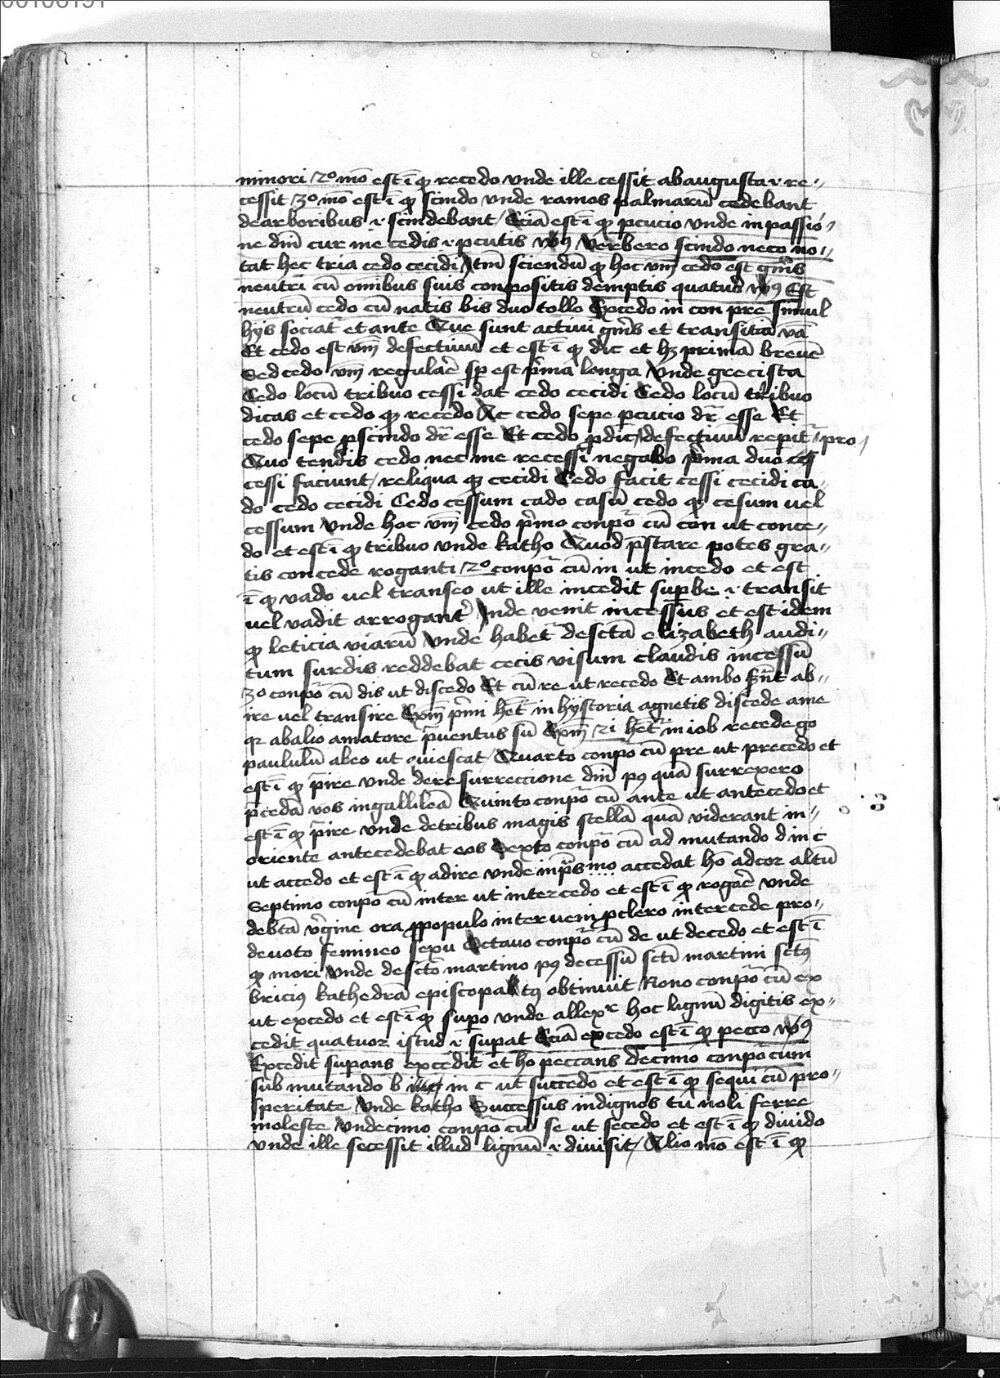 minori / 2º mō est ī q recedo vnde ille cessit ab augusta ⁊ re-//
cessit / 3º mō est ī q scindo vnde ramos palmarū cedebant
de arboribus ⁊ scindebant / Eciā est ī q pcucio vnde in passio-//
ne dm̄ cur me cedis ⁊ pcutis vs9 Verbero scindo neco no-//
tat hec tria cedo cecidi Itm̄ sciendū q hoc vm̄ cedo est gn̄is
neutri cū omībus suis conpositis demptis quatuor vs9 Est
neutrū cedo cū natis bis duo tollo Excedo in con pre simul
hijs sociat et ante Que sunt actiui gn̄is et transitiā
Et cedo est vm̄ defectiuū et est ī q dic et hz primā breuē
Sed cedo vm̄ regularē sp est p̄ma longa Vnde grecista
Cedo locū tribuo cessi dat cedo cecidi Cedo locū tribuo
dicas et cedo q recedo Ac cedo sepe pcucio dr̄ esse Et
cedo sepe pscindo dr̄ esse Et cedo p dic / defectiuū reperit̄ / pro /
Quo tendis cedo nec me recessi negabo p̄ma duo
cessi faciunt / reliqua q cecidi Cedo facit cessi cecidi ca-//
do cedo cecidi Cedo cessum cado casū cedo q cesum uel
cessum Vnde hoc vm̄ cedo p̄mo conpō cū con ut conce-//
do et est ī q tribuo vnde katho Quod p̄stare potes gra-//
tis concede roganti / 2º conpō cū in ut incedo et est
ī q vado uel transeo ut ille incedit supbe ⁊ transit
uel vadit arrogant̄ Inde venit incessus et est idem
q leticia viarū Vnde habet̄ de sctā elizabeth audi-//
tum surdis reddebat cecis visum claudis incessū
3º conpō cū dis ut discedo Et cū re ut recedo Et ambo sn̄t ab-//
ire uel transire Exm̄ p̄mi hēt̄ in hystoria agnetis discede a me
qr ab alio amatore p̄uentus sū Exm̄ 2i hēt̄ in iob recede go
paululū ab eo ut quiescat / Quarto conpō cū pre ut precedo et
est ī q p̄ire vnde de resurreccione dm̄ p9 quā surrexero
p̄cedā vos in gallileā Quinto conpō cū ante ut antecedo et
est ī q p̄ire vnde de tribus magis stellā quā viderant in-//
oriente antecedebat eos Sexto conpō cū ad mutando d in c
ut accedo et est ī q adire vnde in ps mo accedat ho ad cor altū
Septimo conpō cū inter ut intercedo et est ī q rogare vnde
de btā v̄gine ora p populo interueni p clero intercede pro-//
deuoto femineo sexu Octauo conpō cū de ut decedo et est ī
q mori Vnde de sctō martino p9 decessū sctī martini sct9
bricius kathedrā episcopatus obtinuit Nono conpō cū ex
ut excedo et est ī q supo vnde allexr hoc lignū digitis ex-//
cedit quatuor istud ⁊ supat Eciā excedo est ī q pecco vs9
Excedit supans excedit et ho peccans Decimo conpō cum
sub mutando b in c ut succedo et est ī q sequi cū pro-//
speritate Vnde katho Successus indignos tū noli ferre
moleste Vndecimo conpō cū se ut secedo et est ī q diuido
vnde ille secessit illud lignū ⁊ diuisit / Alio mō est ī q